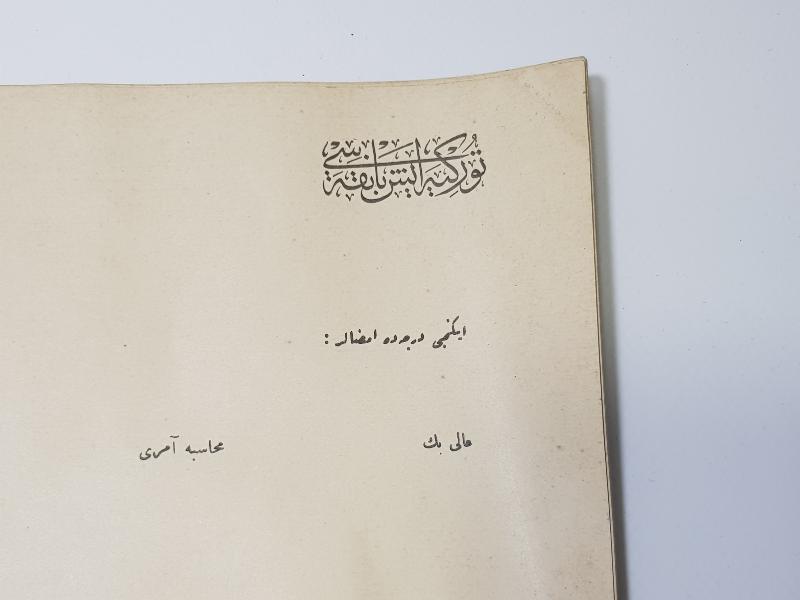 توركیه ایش بانقه سی
ایكنجی درجه ده امضالر :
عالی بك
محاسبه آمری